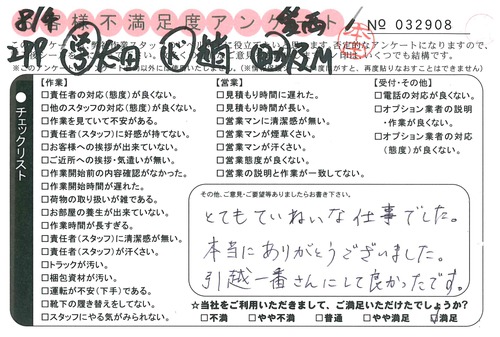 8/4
お客様不満足度アンケート
No 032908
※このアンケート
【作業】
□責任者の対応(態度)が良くない。
□他のスタッフの対応(態度)が良くない。
□作業を見ていて不安がある。
□責任者(スタッフ)に好感が持てない。
□お客様への挨拶が出来ていない。
□ご近所への挨拶・気遣いが無い。
□作業開始前の内容確認がなかった。
□作業開始時間が遅れた。
□荷物の取り扱いが雑である。
□お部屋の養生が出来ていない。
□作業時間が長すぎる。
□責任者(スタッフ)に清潔感が無い。
□責任者(スタッフ)が汗くさい。
□トラックが汚い。
□梱包資材が汚い。
□運転が不安(下手)である。
□靴下の履き替えをしてない。
□スタッフにやる気がみられない。
チェックリスト
【営業】
□見積もり時間に遅れた。
□見積もり時間が長い。
□営業マンに清潔感が無い。
□営業マンが煙草くさい。
□営業マンが汗くさい。
□営業態度が良くない。
□営業の説明と作業が一致してない。
【受付・その他】
□電話の対応が良くない。
□オプション業者の説明
・作業が良くない。
□オプション業者の対応
(態度)が良くない。
その他、ご意見・ご要望等ありましたらお書き下さい。
とてもていねいな仕事でした。
本当にありがとうございました。
引越一番さんにして良かったです。
☆当社をご利用いただきまして、ご満足いただけたでしょうか?
□不満 □やや不満 □普通 □やや満足 ☑満足